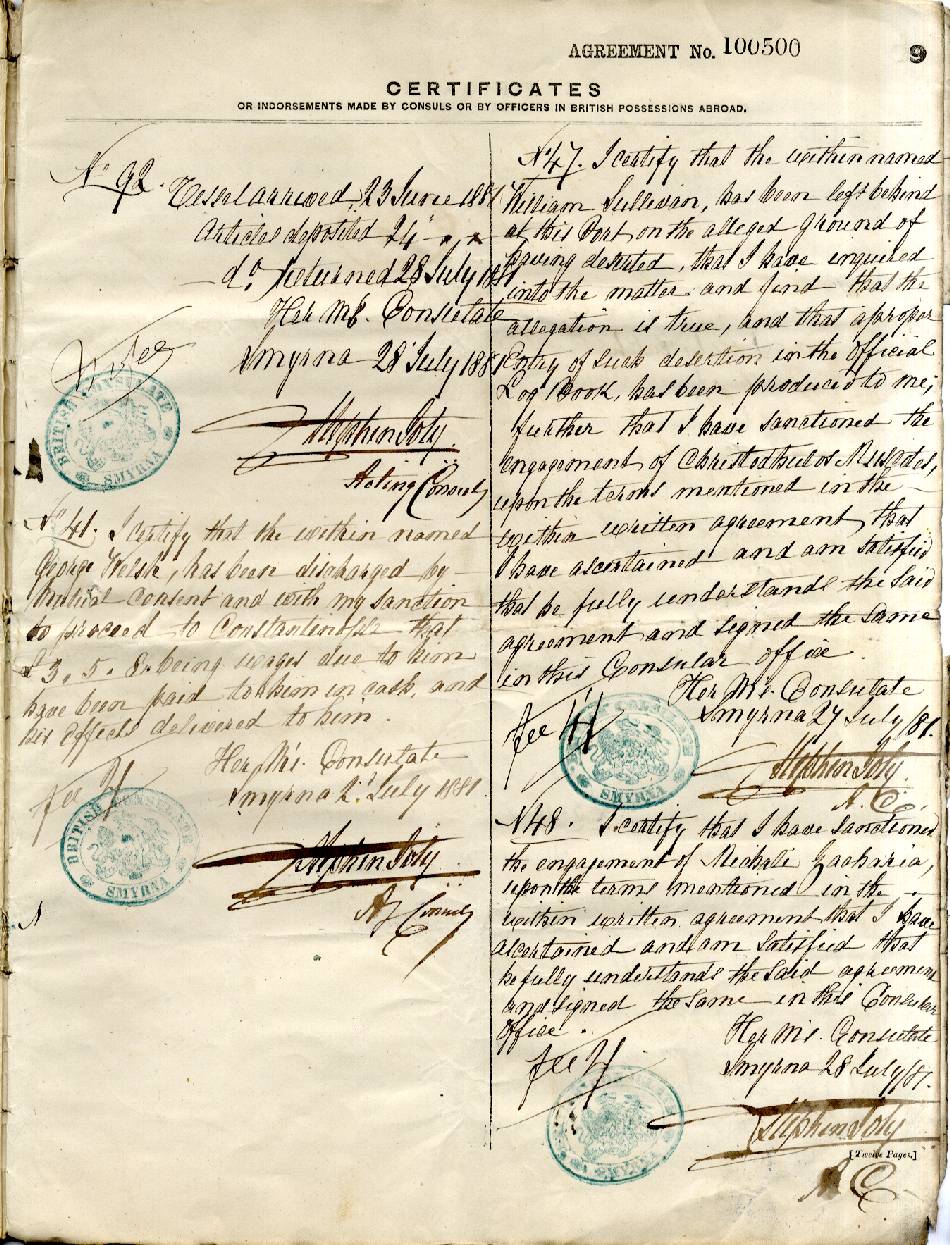 AGREEMENT No. 100500
9
CERTIFICATES
OR INDORSEMENTS MADE BY CONSULS OR BY OFFICERS IN BRITISH POSSESSIONS ABROAD.
No 92. Vessel arrived 23 June 1881
Articles deposited 24 " "
do returned 28 July 1881
Her M's. Consulate
Smyrna 28 July 1881
BRITISH CONSULATE
SMYRNA
Stephen Joly
Acting Consul
No 41. I certify that the within named
George Welsh, has been discharged by
mutual consent and with my sanction
to proceed to Constantinople that
£3.5.8. being wages due to him
have been paid to him in cash, and
his Effects delivered to him.
Her M's. Consulate
Smyrna 2 July 1881
fee 2/
BRITISH CONSULATE
SMYRNA
Stephen Joly
Ag Consul
No 47. I certify that the within named
William Sullivan, has been left behind
at this Port on the alleged ground of
having deserted, that I have enquired
into the matter and find that the
allegation is true, and that a proper
Entry of such desertion in the Official
Log Book, has been produced to me;
further that I have sanctioned the
engagement of Christodhulos
upon the terms mentioned in the
within written agreement, that
I have ascertained and am satisfied
that he fully understands the said
agreement and signed the same
in this Consular office
Her M's. Consulate
Smyrna 27 July /81.
fee 4/
SMYRNA
Stephen Joly
A. C.
No 48. I certify that I have sanctioned
the engagement of Michali Zacharia,
upon the terms mentioned in the
within written agreement that I have
ascertained and am satisfied that
he fully understands the said agreement
and signed the same in this Consular
Office.
Her M's. Consulate
Smyrna 28 July /81.
fee 2/
Stephen Joly
[Twelve Pages.]
A C